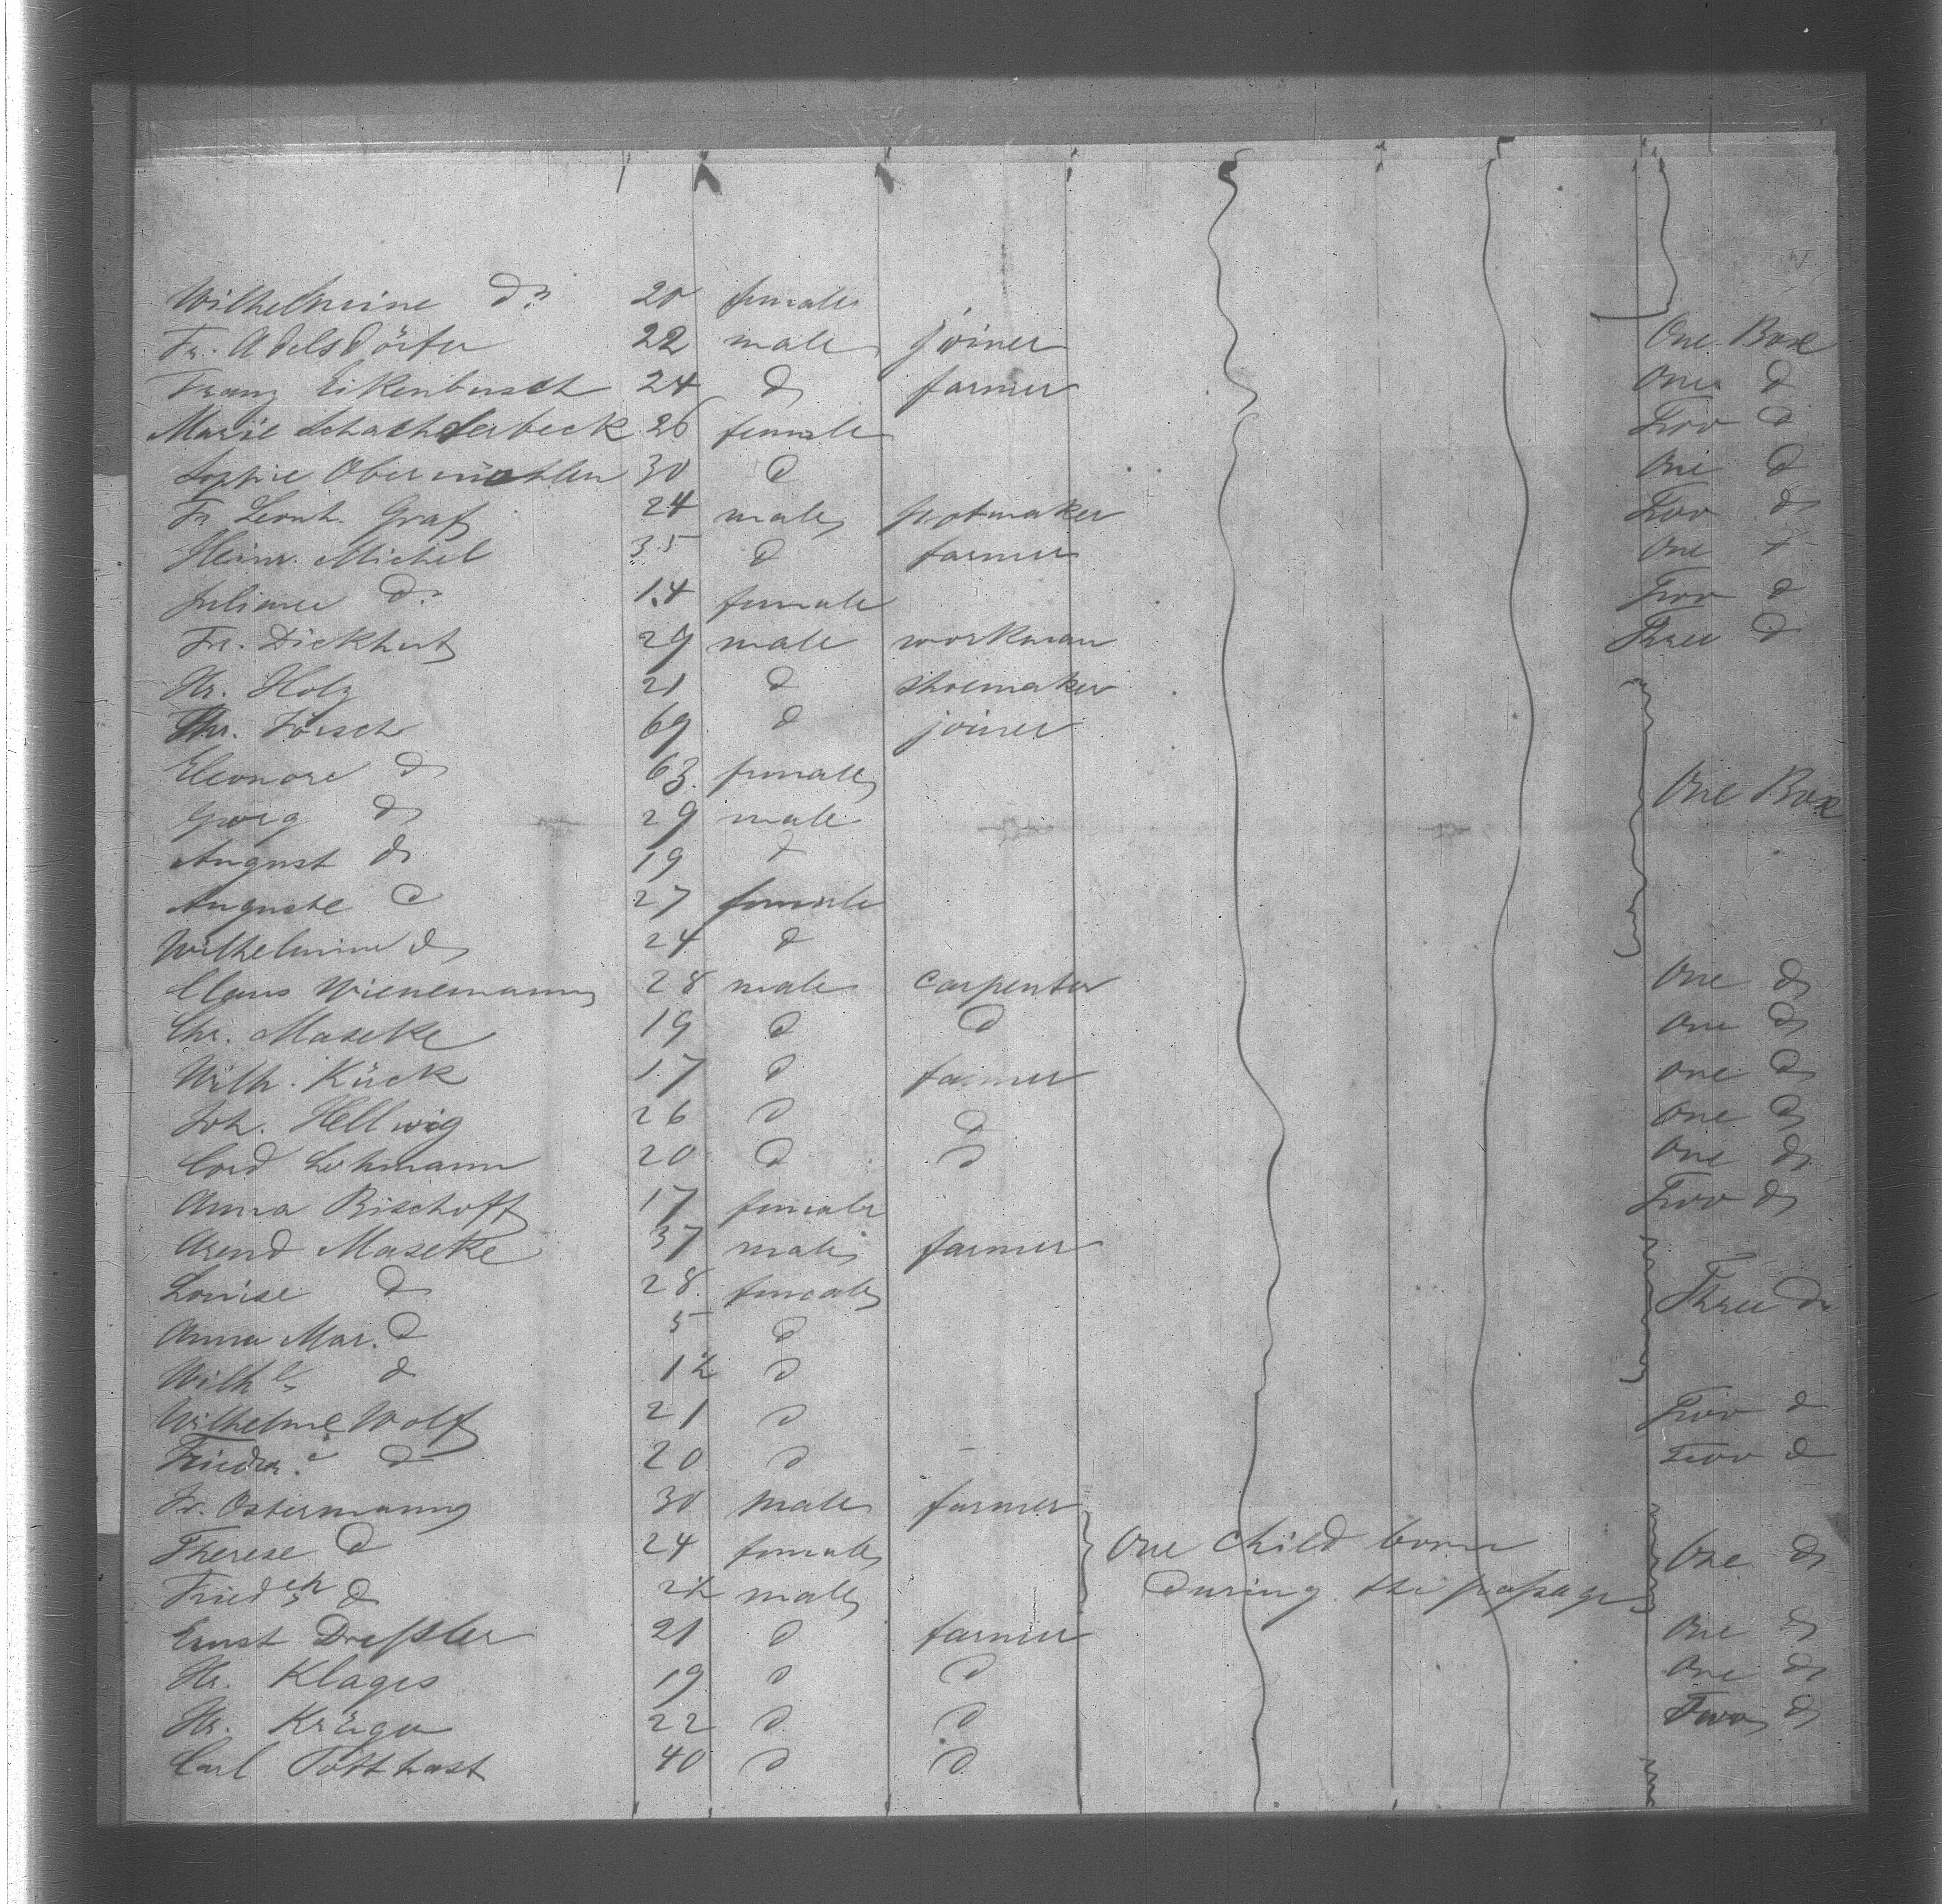 Wilhelmine do 20 female
Fr. Adelsdörfer 22 male joiner One Box
Franz Eikenbusch 24 d farmer One d
Marie Schachderbeck 26 female Two d
Sophie Obermöhlen 30 d One d
Fr Leonh. Graf 24 male potmaker Two d
Heinr. Michel 35 d farmer One d
Juliane do 14 female Two d
Fr. Dickhut 29 male workman Three d
Hr. Holz 21 d shoemaker
Chr. Försch 69 d joiner
Eleonore d 63 female One Box
Georg d 29 male
August d 19 d
Auguste d 27 female
Wilhelmine d 24 d
Claus Wienemann 28 male carpenter One d
Chr. Maseke 19 d d One d
Wilh. Kück 17 d farmer One d
Joh. Hellwig 26 d d One d
Cord Lehmann 20 d d One d
Anna Bischoff 17 female Two d
Arend Maseke 37 male farmer
Louise d 28 female Three do
Anna Mar. d 5 d
Wilhe d d
Wilhelme Wolf 21 d Two d
Friedr.e d 20 d Two d
Fr. Ostermann 30 male farmer
Therese d 24 female One child born One d
Friedch d male during the passage
Ernst Dreßler 21 d farmer One d
Hr. Klages 19 d d One d
Hr. Krüger 22 d d Two d
Carl Potthast 40 d d